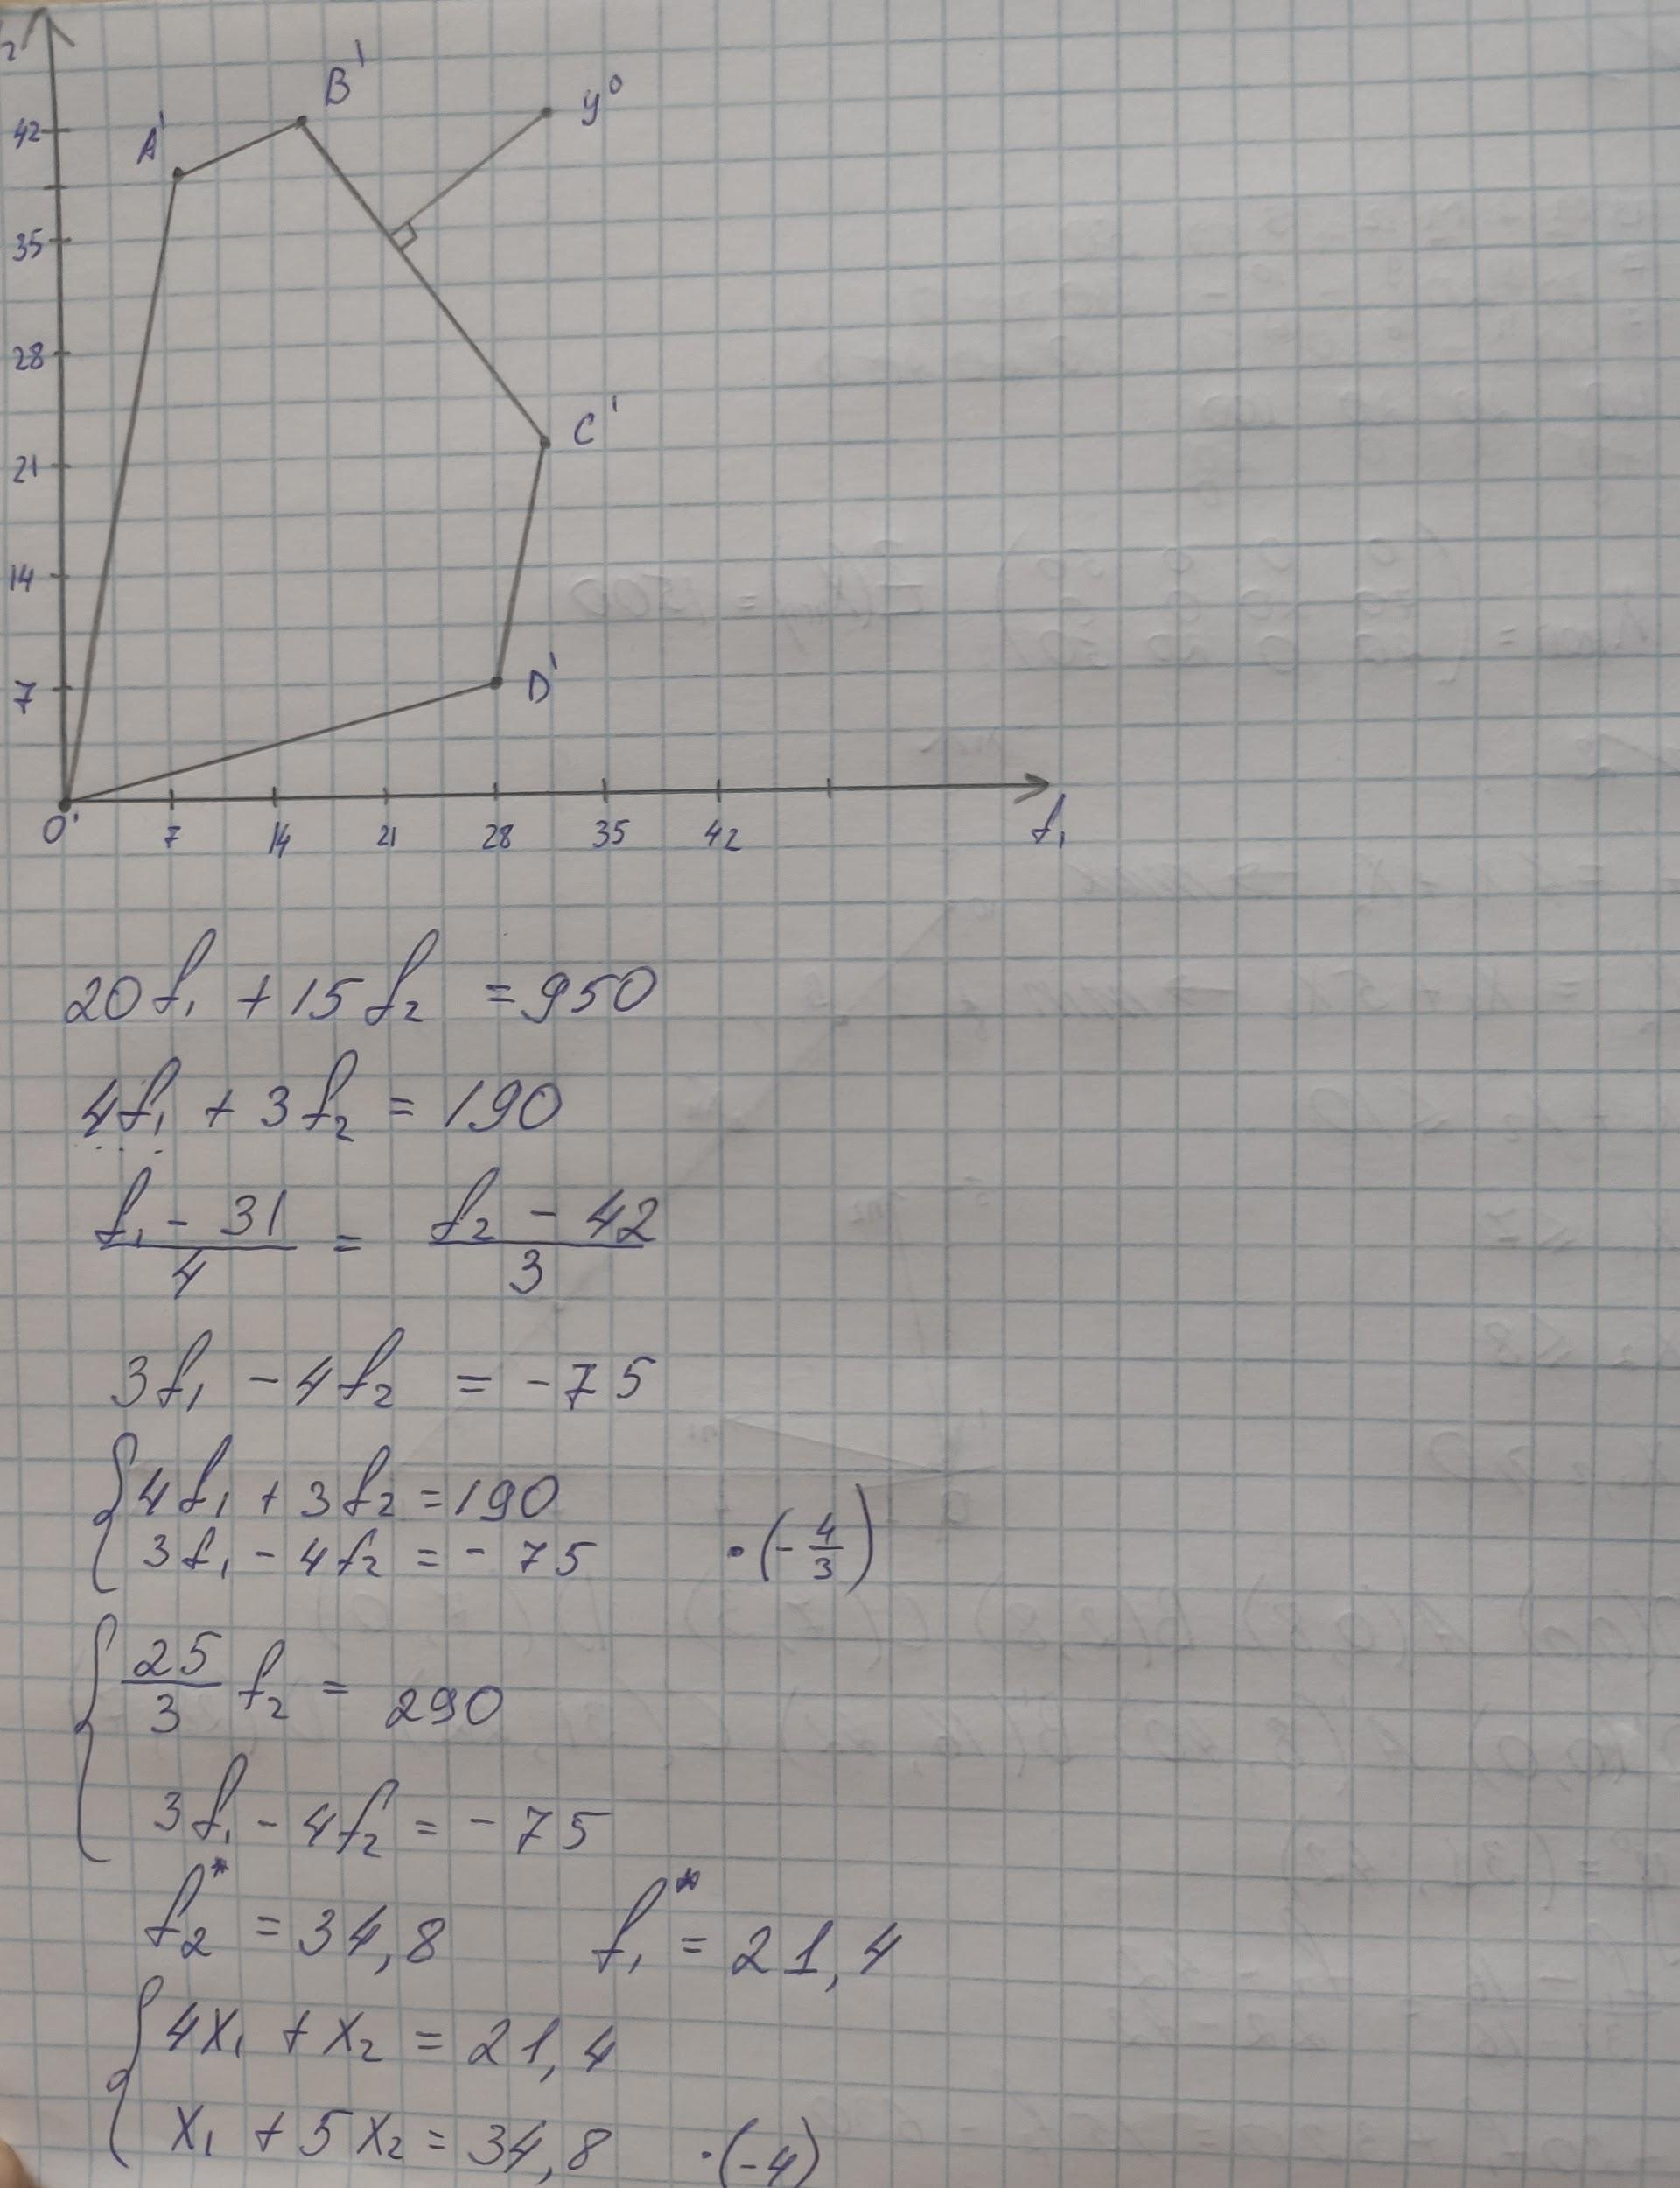 2
B'
y⁰
42
A'
35
28
C'
21
14
D'
7
O'
7 14 21 28 35 42
f₁
20f₁ + 15f₂ = 950
4f₁ + 3f₂ = 190
(f₁ - 31)/4 = (f₂ - 42)/3
3f₁ - 4f₂ = -75
{ 4f₁ + 3f₂ = 190
3f₁ - 4f₂ = -75 · (-4/3)
{ 25/3 f₂ = 290
3f₁ - 4f₂ = -75
f₂* = 34,8 f₁* = 21,4
{ 4x₁ + x₂ = 21,4
x₁ + 5x₂ = 34,8 · (-4)